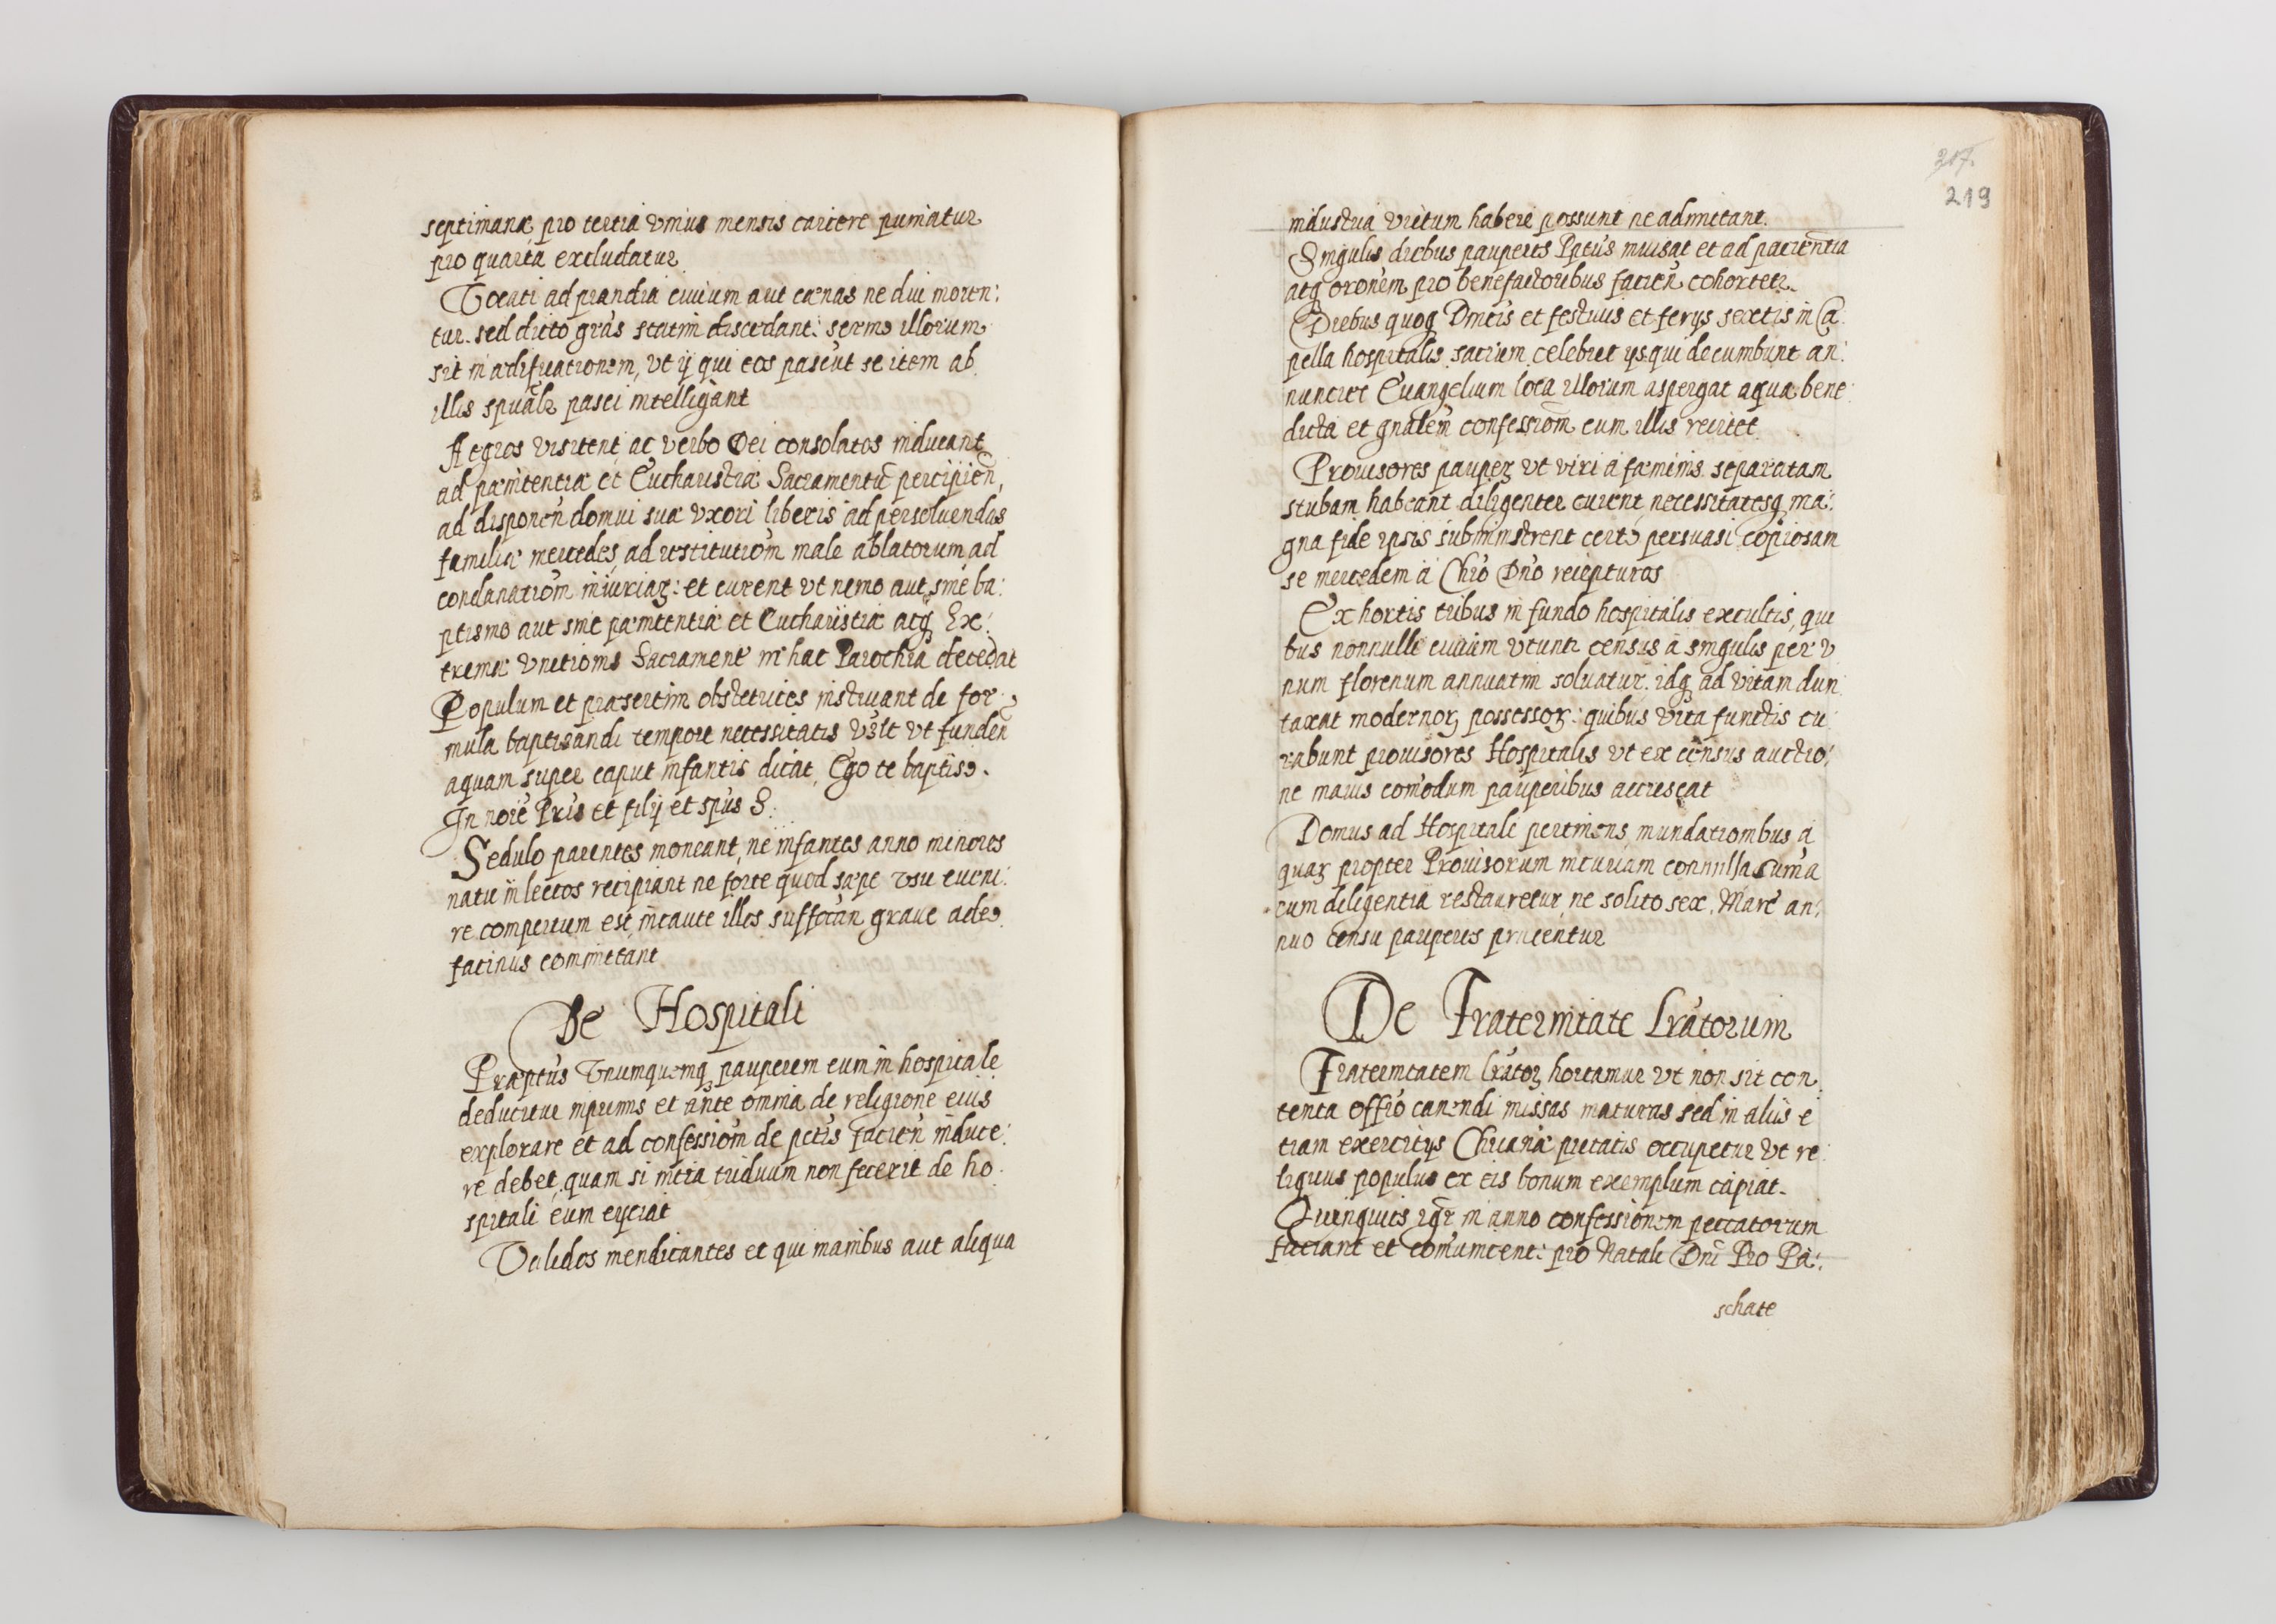 septimanæ pro tertia vnius mensis carcere puniatur
pro quarta excludatur
Vocati ad prandia ciuium aut cænas ne diu moren:
tur. sed dicto grãs statim discedant: sermo illorum
sit in ædificationem, vt ij qui eos pascũt se item ab
illis spũalr pasci intelligant
Aegros visitent ac verbo Dei consolatos inducant
ad pænitentiæ et Eucharistiæ Sacramentũ percipien̄,
ad disponen̄ domui suæ vxori liberis ad persoluendas
familiæ mercedes, ad restitutiōm male ablatorum ad
condanatiōm iniuriaꝝ: et curent vt nemo aut sine ba:
ptismo aut sine pænitentia et Eucharistiæ atqꝫ Ex:
tremæ vnctionis Sacramen̄t in hac Parochia decedat
Populum et præsertim obstetrices instruant de for
mula baptisandi tempore necessitatis vslt vt funden̄
aquam super caput infantis dicāt, Ego te baptiso.
In noīe Pr̄is et filij et spũs S.
Sedulo parentes moneant, ne infantes anno minores
natu in lectos recipiant ne forte quod sæpe vsu eueni:
re compertum est, incaute illos suffocan̄ graue adeo
facinus committant
De Hospitali
Præptũs Vnumquemqꝫ pauperem cum in hospitale
deducitur inprimis et ante omnia de religione eius
explorare et ad confessiōm de pctīs facien̄ induce:
re debet, quam si intra triduum non fecerit de ho:
spitali eum eijciat
Validos mendicantes et qui manibus aut aliqua
217.
219
industria victum habere possunt ne admittant.
Singulis diebus pauperes Pptũs inuisat et ad patientiā
atqꝫ orōnem pro benefactoribus facien̄ cohortetr.
Diebus quoqꝫ Dnīcis et festiuis et ferijs sextis in Ca
pella hospitalis sacrum celebret ijs qui decumbunt an:
nunciet Euangelium loca illorum aspergat aqua bene:
dicta et gn̄alem confessiōm cum illis recitet.
Prouisores paupeꝝ vt viri a fæminis separatam
stubam habeant diligenter curent, necessitatesqꝫ ma:
gna fide ipsis subministrent certo persuasi copiosam
se mercedem à Chrō Dnō recepturos
Ex hortis tribus in fundo hospitalis excultis, qui
bus nonnulli ciuium vtuntr census à singulis per v
num florenum annuatim soluatur. idqꝫ ad vitam dun
taxat modernoꝝ possessoꝝ: quibus vita functis cu:
rabunt prouisores Hospitalis vt ex census auctio:
ne maius com̄odum pauperibus accrescat
Domus ad Hospitale pertinens mundationibus a
quaꝝ propter Prouisorum incuriam conuulsa sum̄a
cum diligentia restauretur, ne solito sex. Marc̄ an:
nuo censu pauperes priuentur
De Fraternitate Lrātorum
Fraternitatem lrātoꝝ hortamur vt non sit con:
tenta offīo canendi missas maturas sed in aliis e
tiam exercitijs Chrianæ pietatis occupetur vt re:
liquus populus ex eis bonum exemplum capiat.
Quinquies igr̄ in anno confessionem peccatorum
faciant et com̄unicent: pro Natali Dnī Pro Pa:
schate